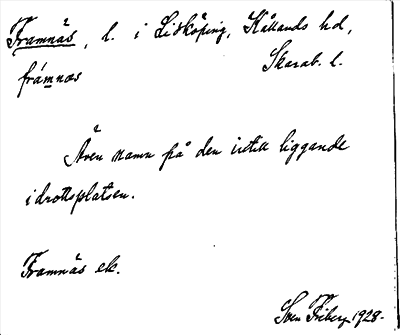 Framnäs, l. i Lidköping, Kållands hd,
Skarab. l.
frámnæs
Även namn på den intill liggande
idrottsplatsen.
Framnäs ek.
Sven Friberg 1928.